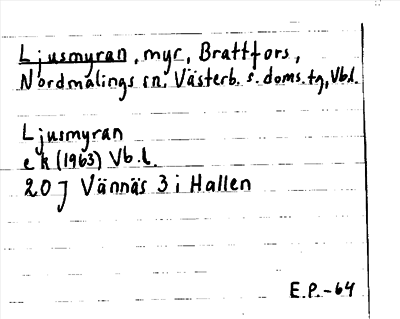 Ljusmyran, myr, Brattfors,
Nordmalings sn, Västerb. s. doms. tg, Vb.l.
Ljusmyran
ek (1963) Vb.l.
20 J Vännäs 3 i Hallen
E.P.-64